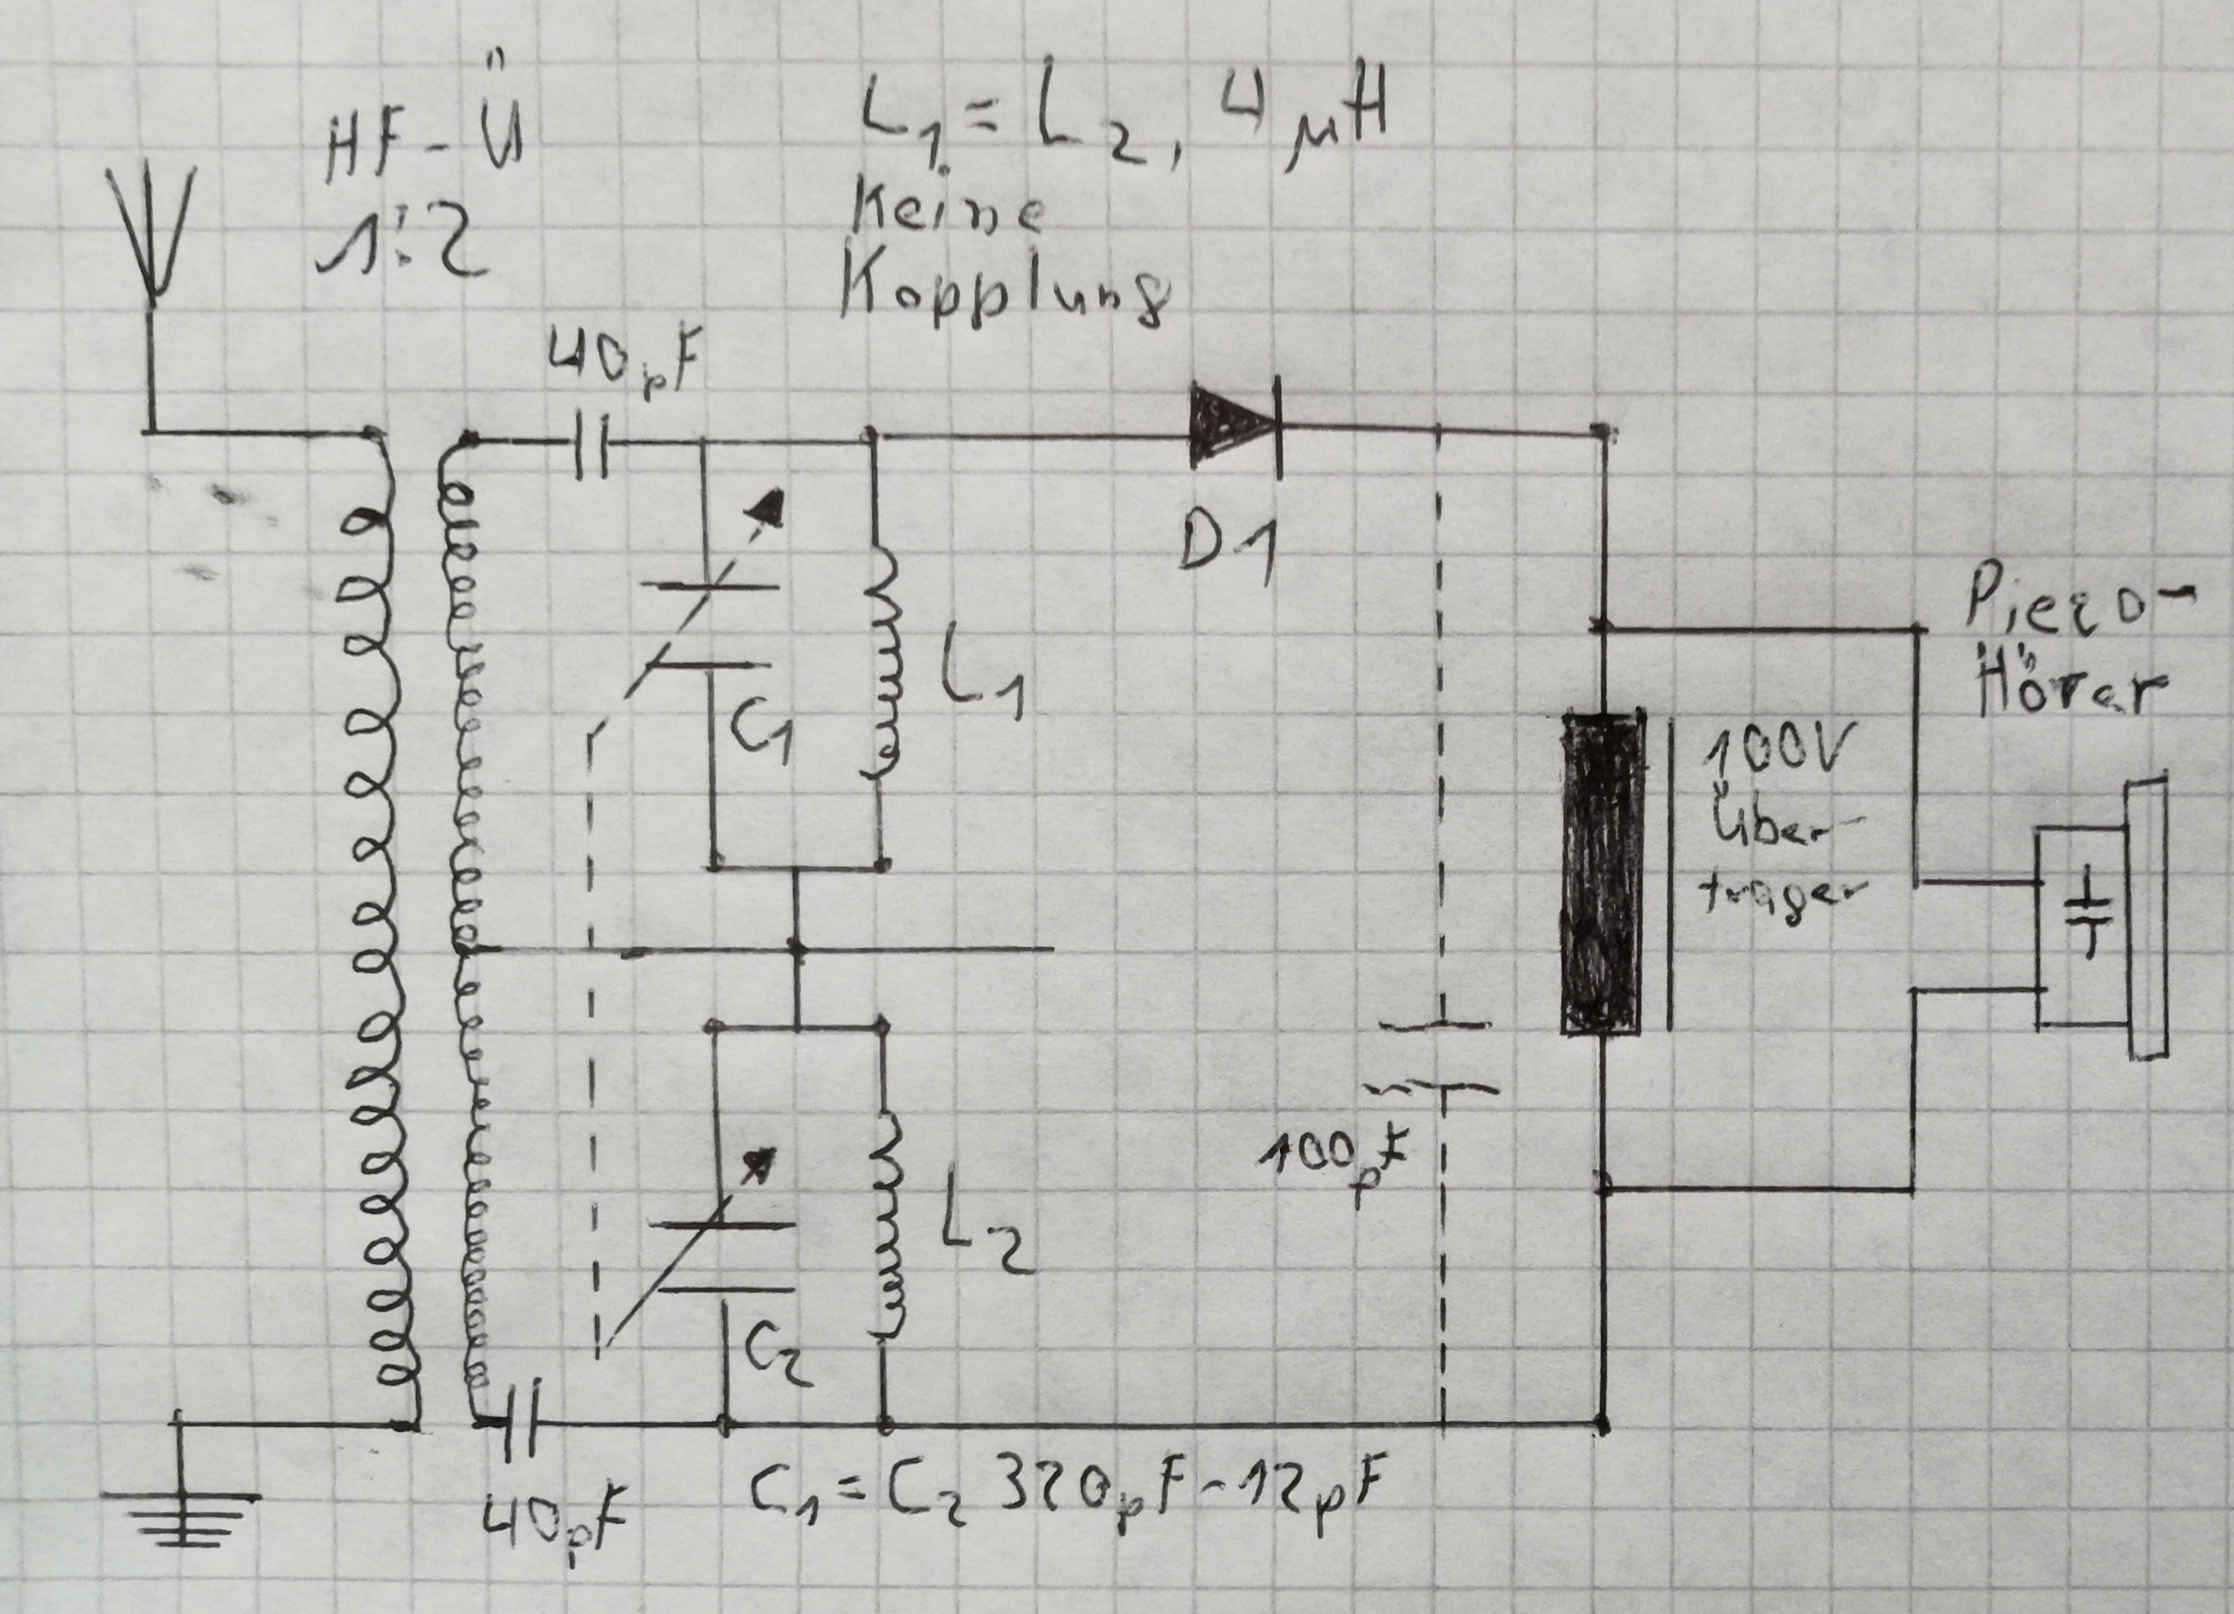 HF-Ü
1:2
L1 = L2, 4 µH
Keine
Kopplung
40pF
D1
L1
C1
Piezo-
Hörer
100V
Über-
trager
100pF
L2
C2
40pF
C1 = C2 320pF-12pF